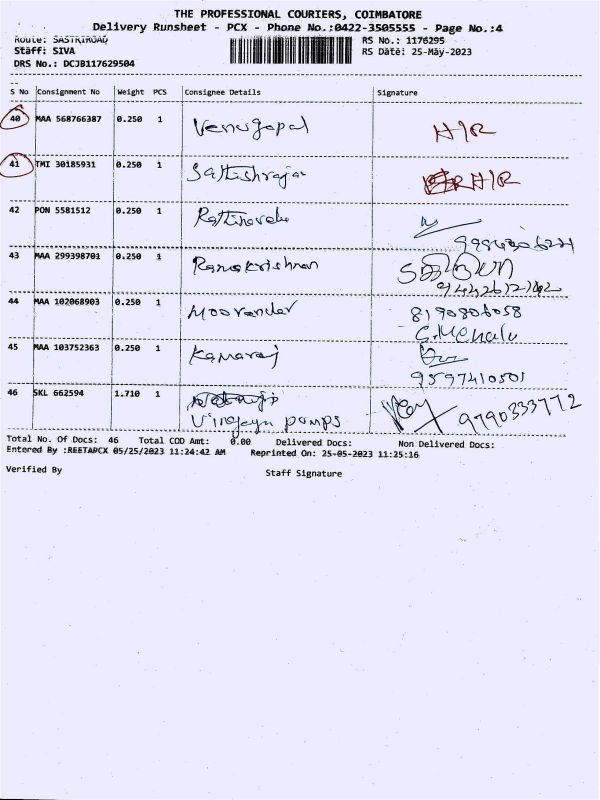 THE PROFESSIONAL COURIERS, COIMBATORE
Delivery Runsheet - PCX - Phone No.:0422-3505555 - Page No.:4
Route: SASTRIROAD RS No.: 1176295
Staff: SIVA RS Date: 25-May-2023
DRS No.: DCJB117629504
S No Consignment No Weight PCS Consignee Details Signature
40 MAA 568766387 0.250 1 Venugopal H/R
41 TMI 30185931 0.250 1 Sathishrajan H/R
42 PON 5581512 0.250 1
43 MAA 299398701 0.250 1 Ramakrishnan
44 MAA 102068903 0.250 1 8190806058
45 MAA 103752363 0.250 1 Kamaraj
9597410501
46 SKL 662594 1.710 1
pumps 9790333772
Total No. Of Docs: 46 Total COD Amt: 0.00 Delivered Docs: Non Delivered Docs:
Entered By :REETAPCX 05/25/2023 11:24:42 AM Reprinted On: 25-05-2023 11:25:16
Verified By Staff Signature